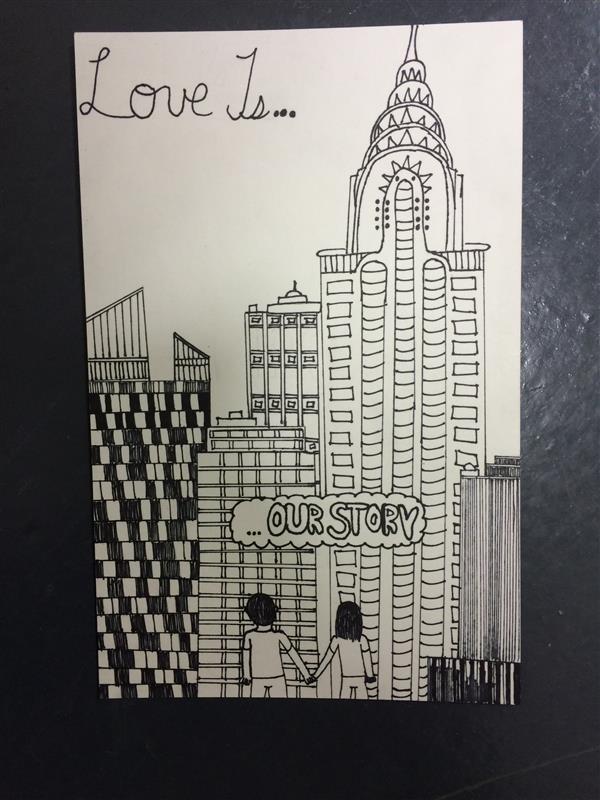 Love Is...
...OUR STORY